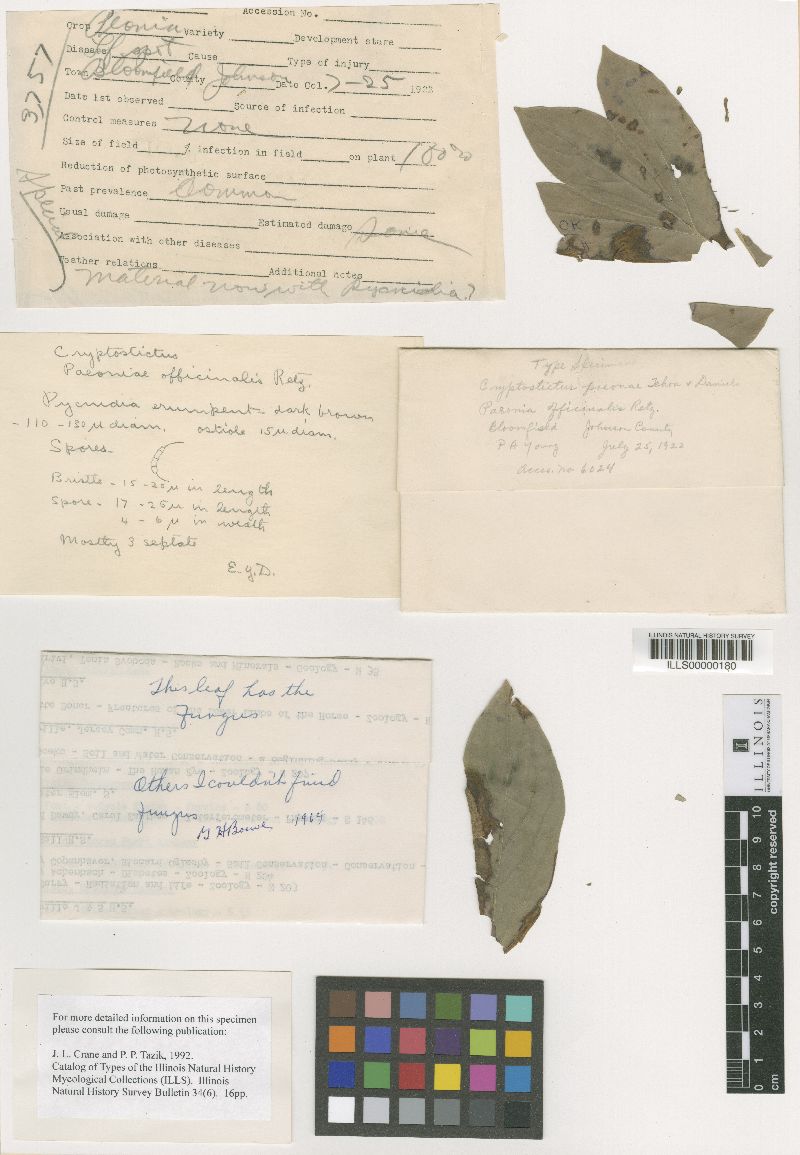 Accession No.
Crop Peonia Variety Development stage
Disease Lf spot Cause Type of injury
Town Bloomfield County Johnson Date Col. 7-25 1922
Date 1st observed Source of infection
Control measures none
Size of field % infection in field on plant 100%
Reduction of photosynthetic surface
Past prevalence Common
Usual damage Estimated damage Some
Association with other diseases
Weather relations Additional notes
Material now with Pycnidia?
3757
OK
Cryptostictus
Paeoniae officinalis Retz.
Pycnidia erumpent dark brown
-110-150 µ diam. ostiole 15 µ diam.
Spores-
Bristle - 15-25 µ in length
Spore - 17-25 µ in length
4-6 µ in width
Mostly 3 septate
E.Y.D.
Type Specimen
Cryptostictus paeonae Tehon & Daniels
Paeonia officinalis Retz.
Bloomfield Johnson County
P A Young July 25, 1922
Acces. no 6024
ILLINOIS NATURAL HISTORY SURVEY
ILLS00000180
This leaf has the
fungus
Others I couldn't find
fungus
G H Boewe 1964
ILLINOIS
copyright reserved
10
9
8
7
6
5
4
3
2
1
0
cm
For more detailed information on this specimen
please consult the following publication:
J. L. Crane and P. P. Tazik, 1992.
Catalog of Types of the Illinois Natural History
Mycological Collections (ILLS). Illinois
Natural History Survey Bulletin 34(6). 16pp.